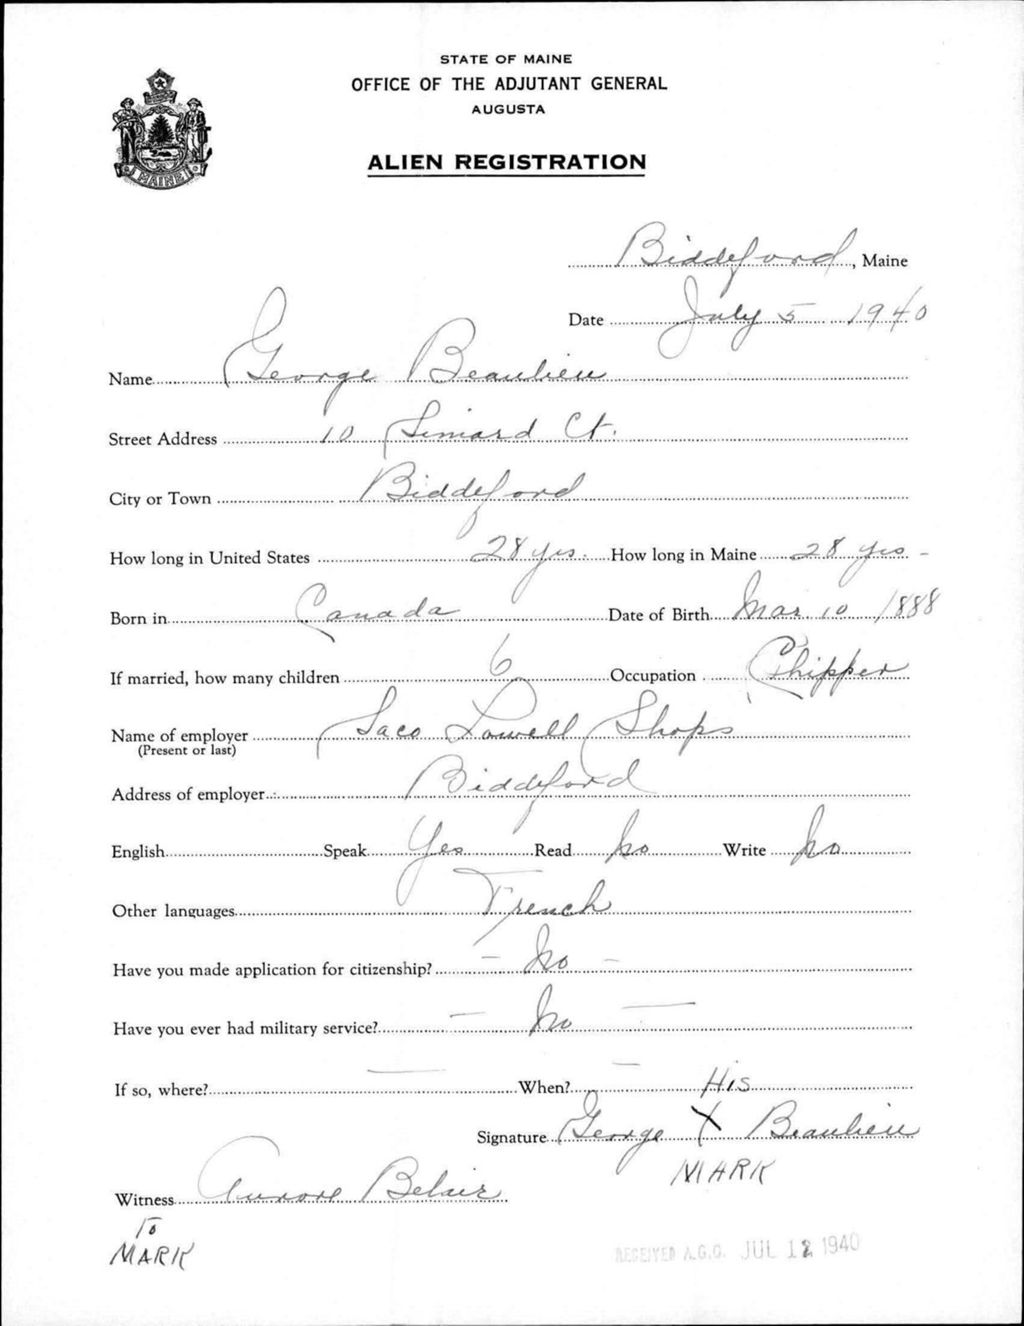 STATE OF MAINE
OFFICE OF THE ADJUTANT GENERAL
AUGUSTA
ALIEN REGISTRATION
MAINE
Biddeford, Maine
Date July 5 1940
Name George Beaulieu
Street Address 10 Simard Ct.
City or Town Biddeford
How long in United States 28 yrs. How long in Maine 28 yrs -
Born in Canada Date of Birth Mar. 10 1888
If married, how many children 6 Occupation Chipper
Name of employer Saco Lowell Shops
(Present or last)
Address of employer Biddeford
English Speak Yes Read No Write No
Other languages French
Have you made application for citizenship? - No -
Have you ever had military service? - No -
If so, where? - When? -
His
Signature George X Beaulieu
MARK
Witness Aurore Belair
To
MARK
RECEIVED A.G.O. JUL 12 1940